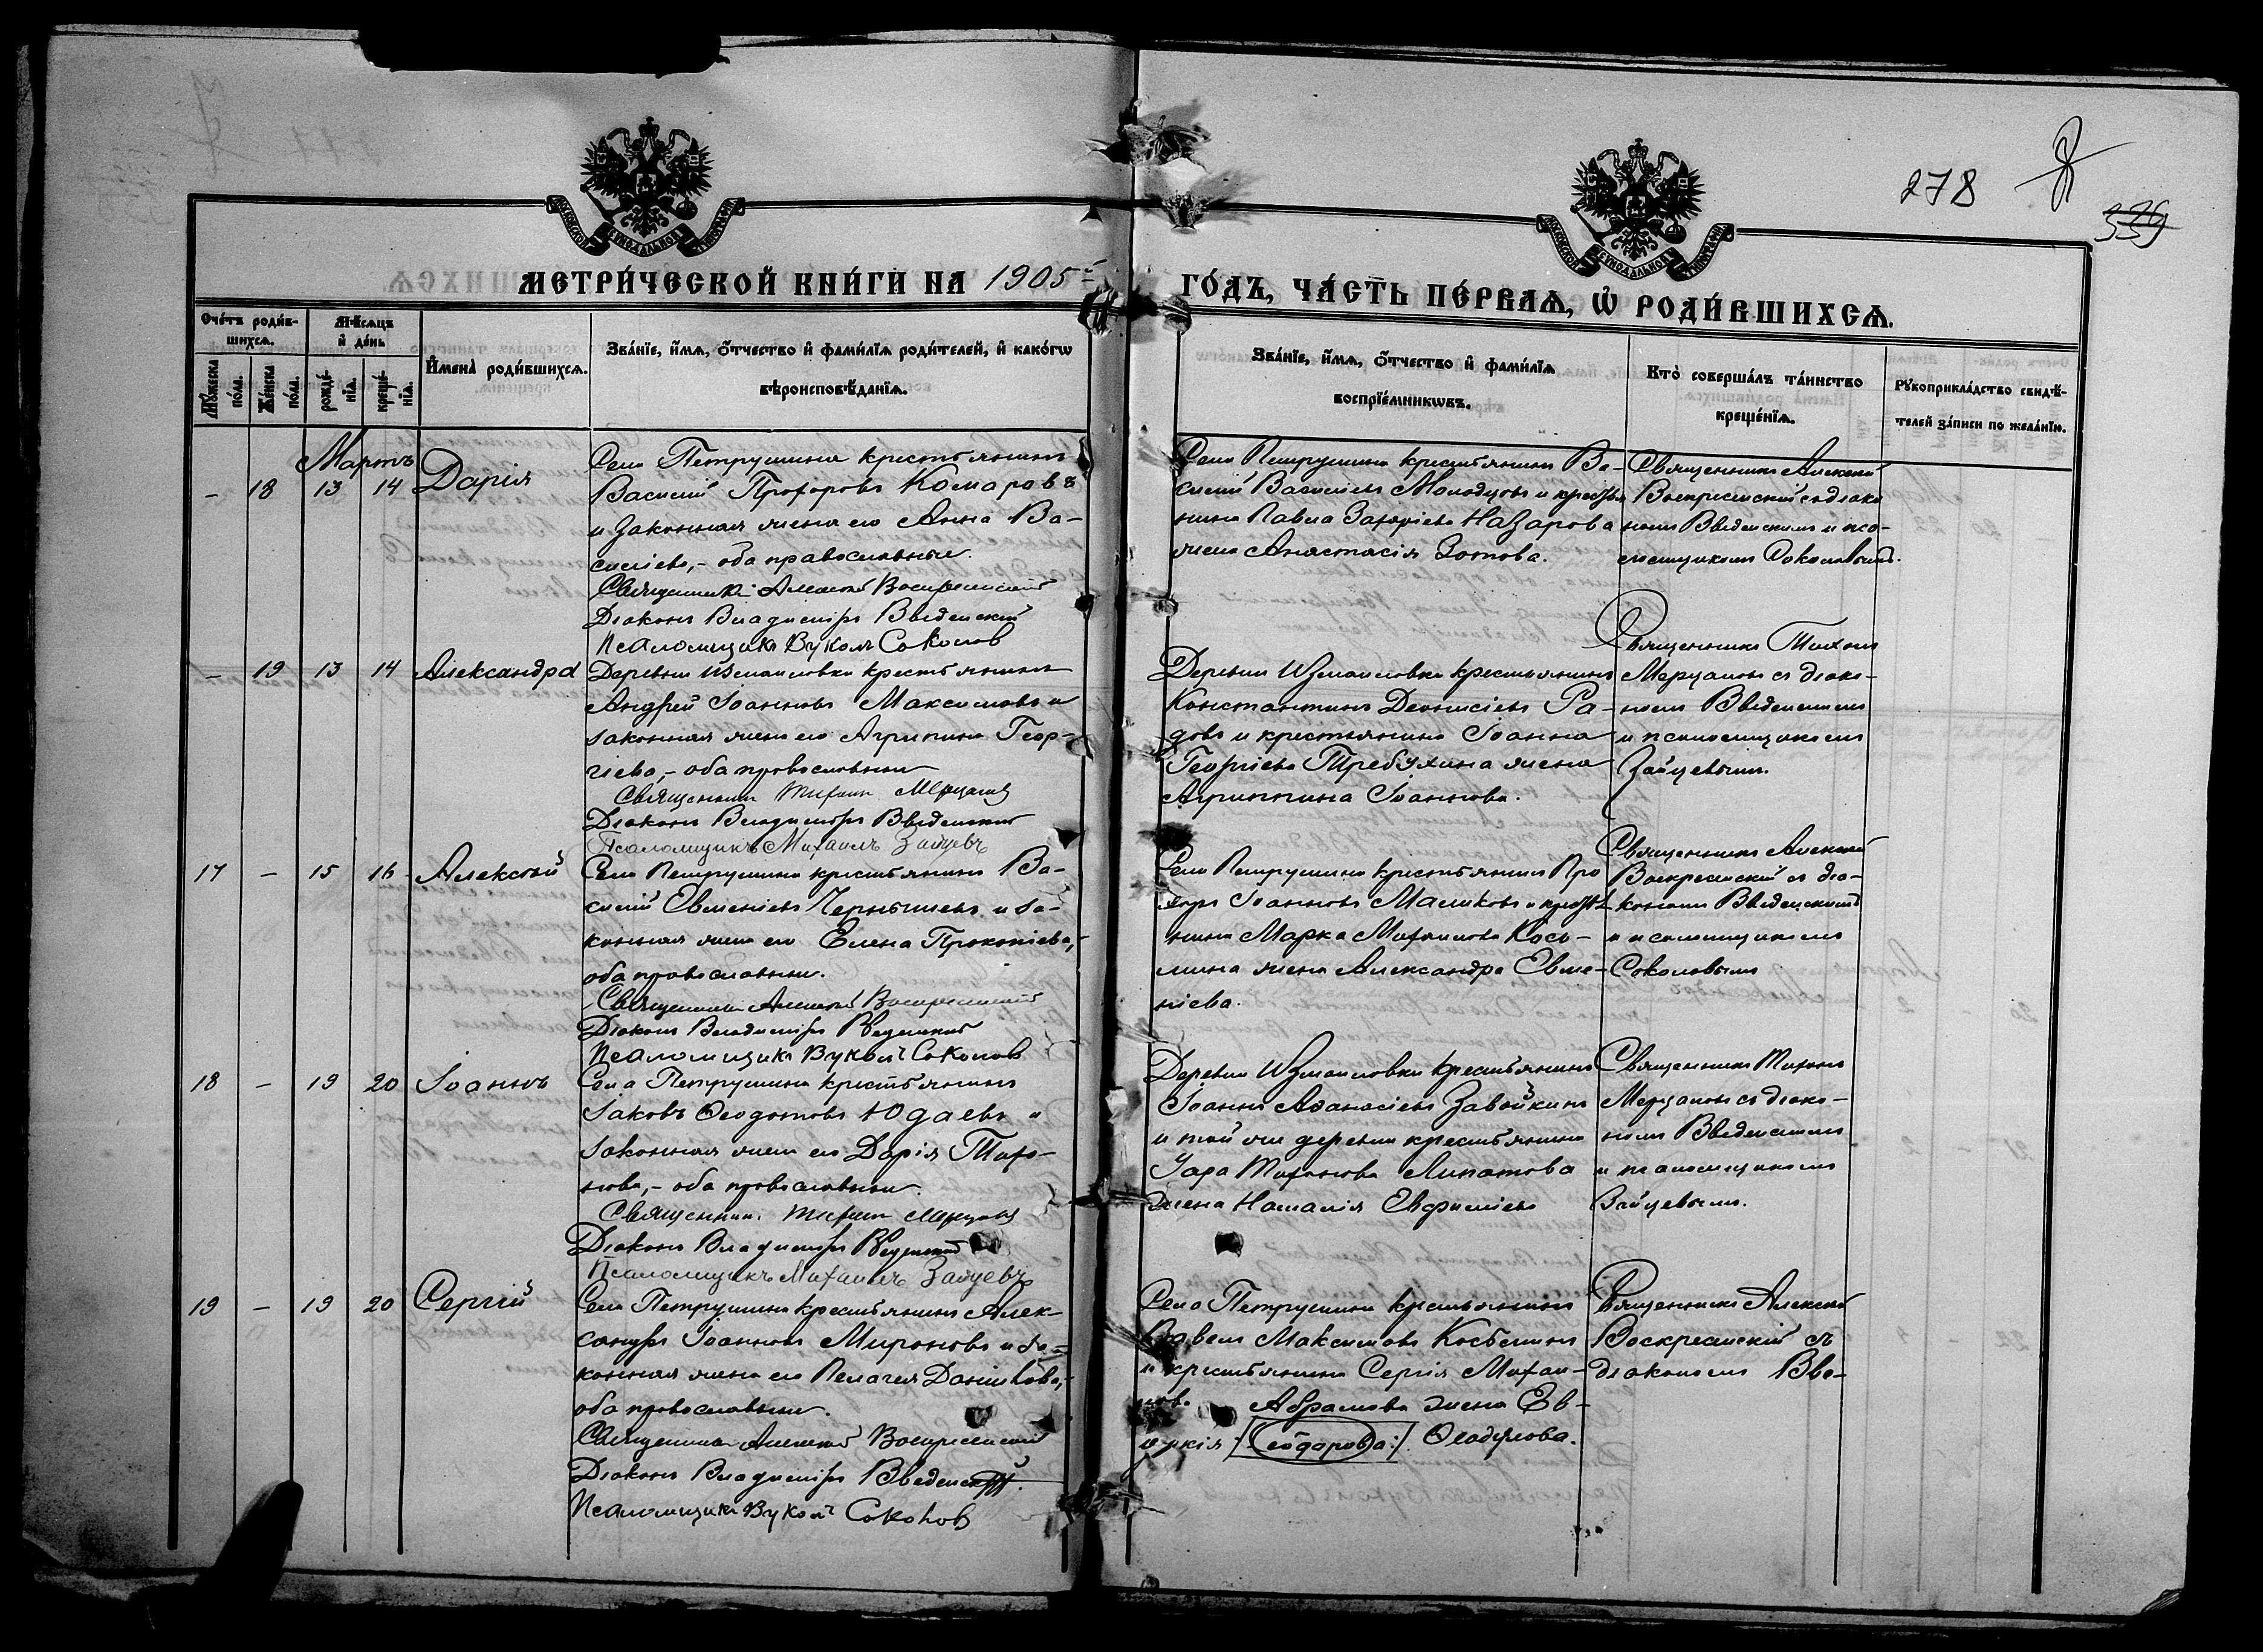 278
339
МОСКОВСКОЙ СѴНОДАЛЬНОЙ ТИПОГРАФІИ
МОСКОВСКОЙ СѴНОДАЛЬНОЙ ТИПОГРАФІИ
МЕТРИ́ЧЕСКОЙ КНИ́ГИ НА 1905й
ГО́ДЪ, ЧА́СТЬ ПЕ́РВАѦ, Ѡ҆ РОДИ́ВШИХСѦ.
Сче́тъ роди́в-
шихсѧ.
Мѣ́сѧцъ
и҆ де́нь
Мꙋ́жеска
по́ла.
Же́нска
по́ла.
рожде́-
нїѧ.
креще́-
нїѧ.
И҆мена̀ роди́вшихсѧ.
Зва́нїе, и҆́мѧ, о҆́тчество и҆ фами́лїѧ роди́телей, и҆ како́гѡ
вѣроисповѣ́данїѧ.
Зва́нїе, и҆́мѧ, о҆́тчество и҆ фами́лїѧ
воспрїе́мникѡвъ.
Кто̀ соверша́лъ та́инство
креще́нїѧ.
Рꙋкоприкла́дство свидѣ́-
телей за́писи по жела́нїю.
Мартъ
– 18 13 14 Дарія
Села Петрушина крестьянинъ
Василій Прохоровъ Комаровъ
и законная жена его Анна Ва-
силіева,- оба православные.
Священникъ Алексій Воскресенскій
Діаконъ Владиміръ Введенскій
Псаломщикъ Вуколъ Соколов
Села Петрушина крестьянинъ Ва-
силій Васильевъ Молодцовъ и крестья
нина Павла Захаріева Назарова
жена Анастасія Зотова.
Священникъ Алексій
Воскресенскій съ діако
номъ Введенскимъ и пса-
ломщикомъ Соколовымъ.
– 19 13 14 Александра
Деревни Измаиловки крестьянинъ
Андрей Іоанновъ Максимовъ и
законная жена его Агрипина Геор-
гіева,- оба православные
Священник Тихон Мерцалов
Діаконъ Владиміръ Введенскій
Псаломщикъ Михаилъ Зайцевъ
Деревни Измаиловки крестьянинъ
Константинъ Деонисіевъ Ра-
довъ и крестьянина Іоанна
Георгіева Требухина жена
Агриппина Іоаннова.
Священникъ Тихонъ
Мерцаловъ съ діако-
номъ Введенскимъ
и псаломщикомъ
Зайцевымъ.
17 – 15 16 Алексѣй
Села Петрушина крестьянинъ Ва-
силій Евменіевъ Чернышевъ и за-
конная жена его Елена Прокопіева,-
оба православные.
Священникъ Алексій Воскресенскій
Діаконъ Владиміръ Введенскій
Псаломщикъ Вуколъ Соколов
Села Петрушина крестьянинъ Про
хоръ Іоанновъ Маликовъ и крестья
нина Марка Михаилова Кось-
мина жена Александра Евме-
ніева.
Священникъ Алексій
Воскресенскій съ діа-
кономъ Введенскимъ
и псаломщикомъ
Соколовымъ
18 – 19 20 Іоаннъ
Села Петрушина крестьянинъ
Іаковъ Ѳеодотовъ Юдаевъ и
законная жена его Дарія Тихо-
нова,- оба православные.
Священник Тихон Мерцалов
Діаконъ Владиміръ Введенскій
Псаломщикъ Михаилъ Зайцевъ
Деревни Измаиловки крестьянинъ
Іоаннъ Аѳанасіевъ Завойкинъ
и той же деревни крестьянина
Уара Тихонова Липатова
жена Наталія Евфиміева
Священникъ Тихонъ
Мерцаловъ съ діако-
номъ Введенскимъ
и псаломщикомъ
Зайцевымъ.
19 – 19 20 Сергій
Села Петрушина крестьянинъ Алек-
сандръ Іоанновъ Мироновъ и за-
конная жена его Пелагея Даніилова,-
оба православные.
Священникъ Алексій Воскресенскій
Діаконъ Владиміръ Введенскій.
Псаломщикъ Вуколъ Соколов
Села Петрушина крестьянинъ
Павелъ Максимовъ Косьминъ
и крестьянина Сергія Михаи-
лова Абрамова жена Ев-
докія Ѳеодулова.
Священникъ Алексій
Воскресенскій съ
діакономъ Вве-